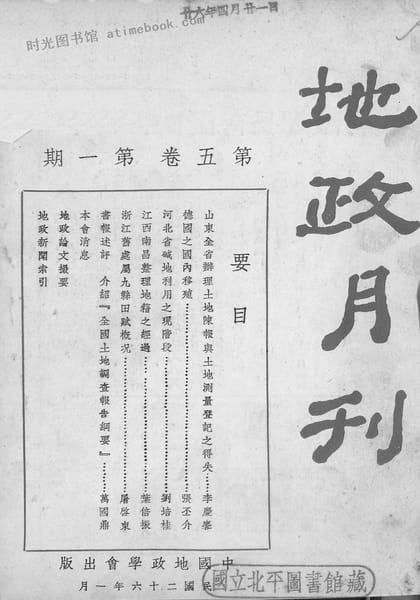 廿六年四月廿一日
时光图书馆 atimebook.com
地政月刊
第五卷 第一期
要目
山東全省辦理土地陳報與土地測量登記之得失…李慶𪊽
德國之國內移殖…張丕介
河北省碱地利用之現階段…劉培桂
江西南昌整理地籍之經過…葉倍振
浙江舊處屬九縣田賦概況…屠啓東
書報述評 介紹『全國土地調查報告綱要』…萬國鼎
本會消息
地政論文撮要
地政新聞索引
中國地政學會出版
民國二十六年一月
國立北平圖書館藏